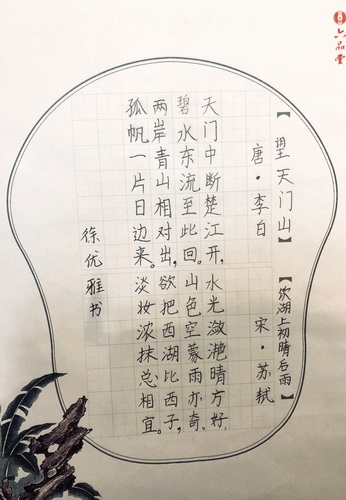 六品堂
【望天门山】
唐·李白
天门中断楚江开，
碧水东流至此回。
两岸青山相对出，
孤帆一片日边来。
【饮湖上初晴后雨】
宋·苏轼
水光潋滟晴方好，
山色空蒙雨亦奇。
欲把西湖比西子，
淡妆浓抹总相宜。
徐优雅书